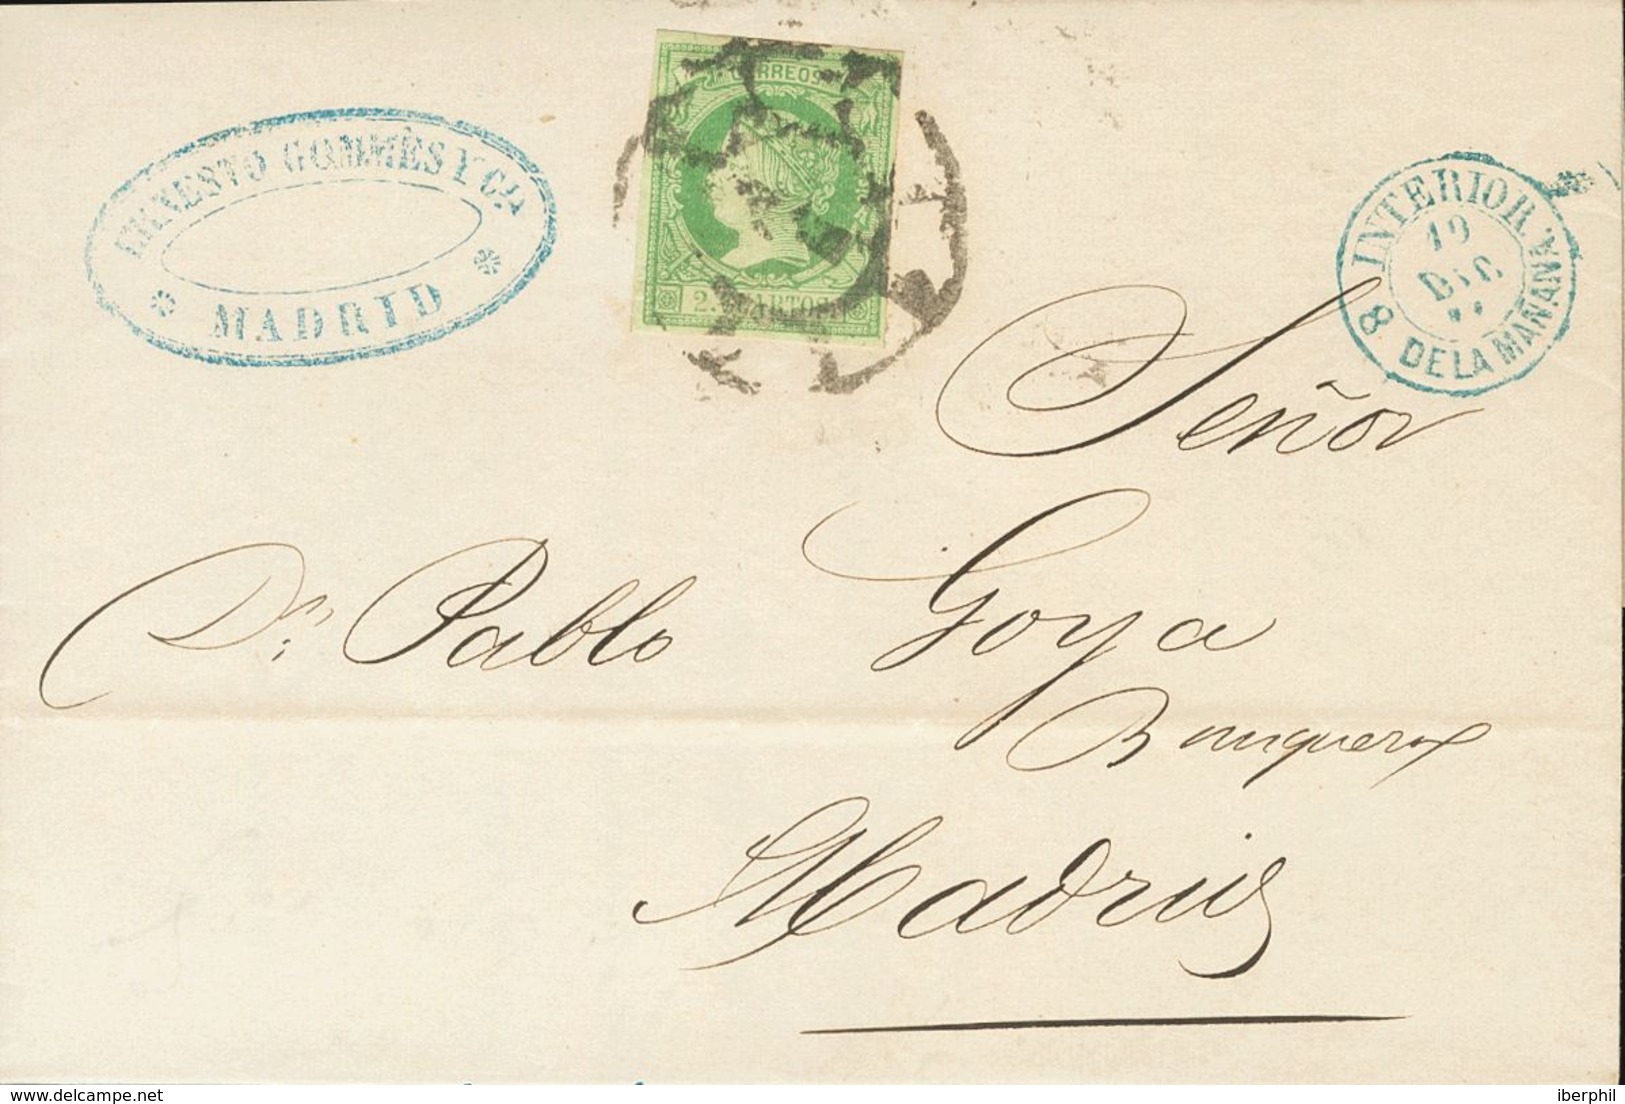 ERNESTO GOMMÈS Y Cª
MADRID
CORREOS
2 CUARTOS
INTERIOR.
19
DIC
8 DE LA MAÑANA.
Señor
Dn. Pablo Goya
Banquero
Madrid
delcampe.net
iberphil